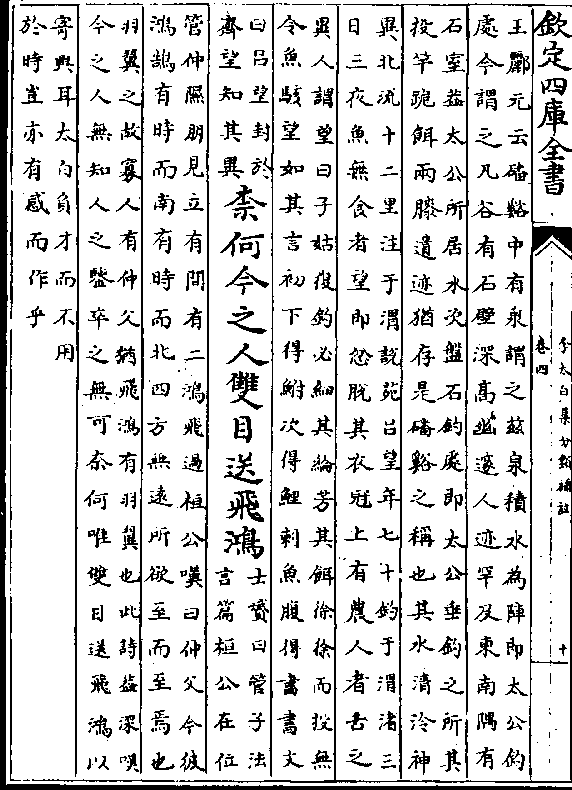 欽定四庫全書
李太白集分類補註
卷四
十
王酈元云磻谿中有泉謂之茲泉積水為陣即太公釣
處今謂之凡谷有石壁深高幽邃人迹罕及東南隅有
石室葢太公所居水次盤石釣處即太公垂釣之所其
投竿跪餌兩膝遺迹猶存是磻谿之稱也其水清泠神
異北流十二里注于渭說苑吕望年七十釣于渭渚三
日三夜魚無食者望即忿脫其衣冠上有農人者古之
異人謂望曰子姑復釣必細其綸芳其餌徐徐而投無
令魚駭望如其言初下得鮒次得鯉刺魚腹得書書文
曰吕望封於
齊望知其異
柰何今之人雙目送飛鴻
士贇曰管子法
言篇桓公在位
管仲隰朋見立有間有二鴻飛過桓公嘆曰仲父今彼
鴻鵠有時而南有時而北四方無遠所欲至而至焉也
羽翼之故寡人有仲父猶飛鴻有羽翼也此詩葢深嘆
今之人無知人之鑒卒之無可奈何唯雙目送飛鴻以
寄興耳太白負才而不用
於時豈亦有感而作乎